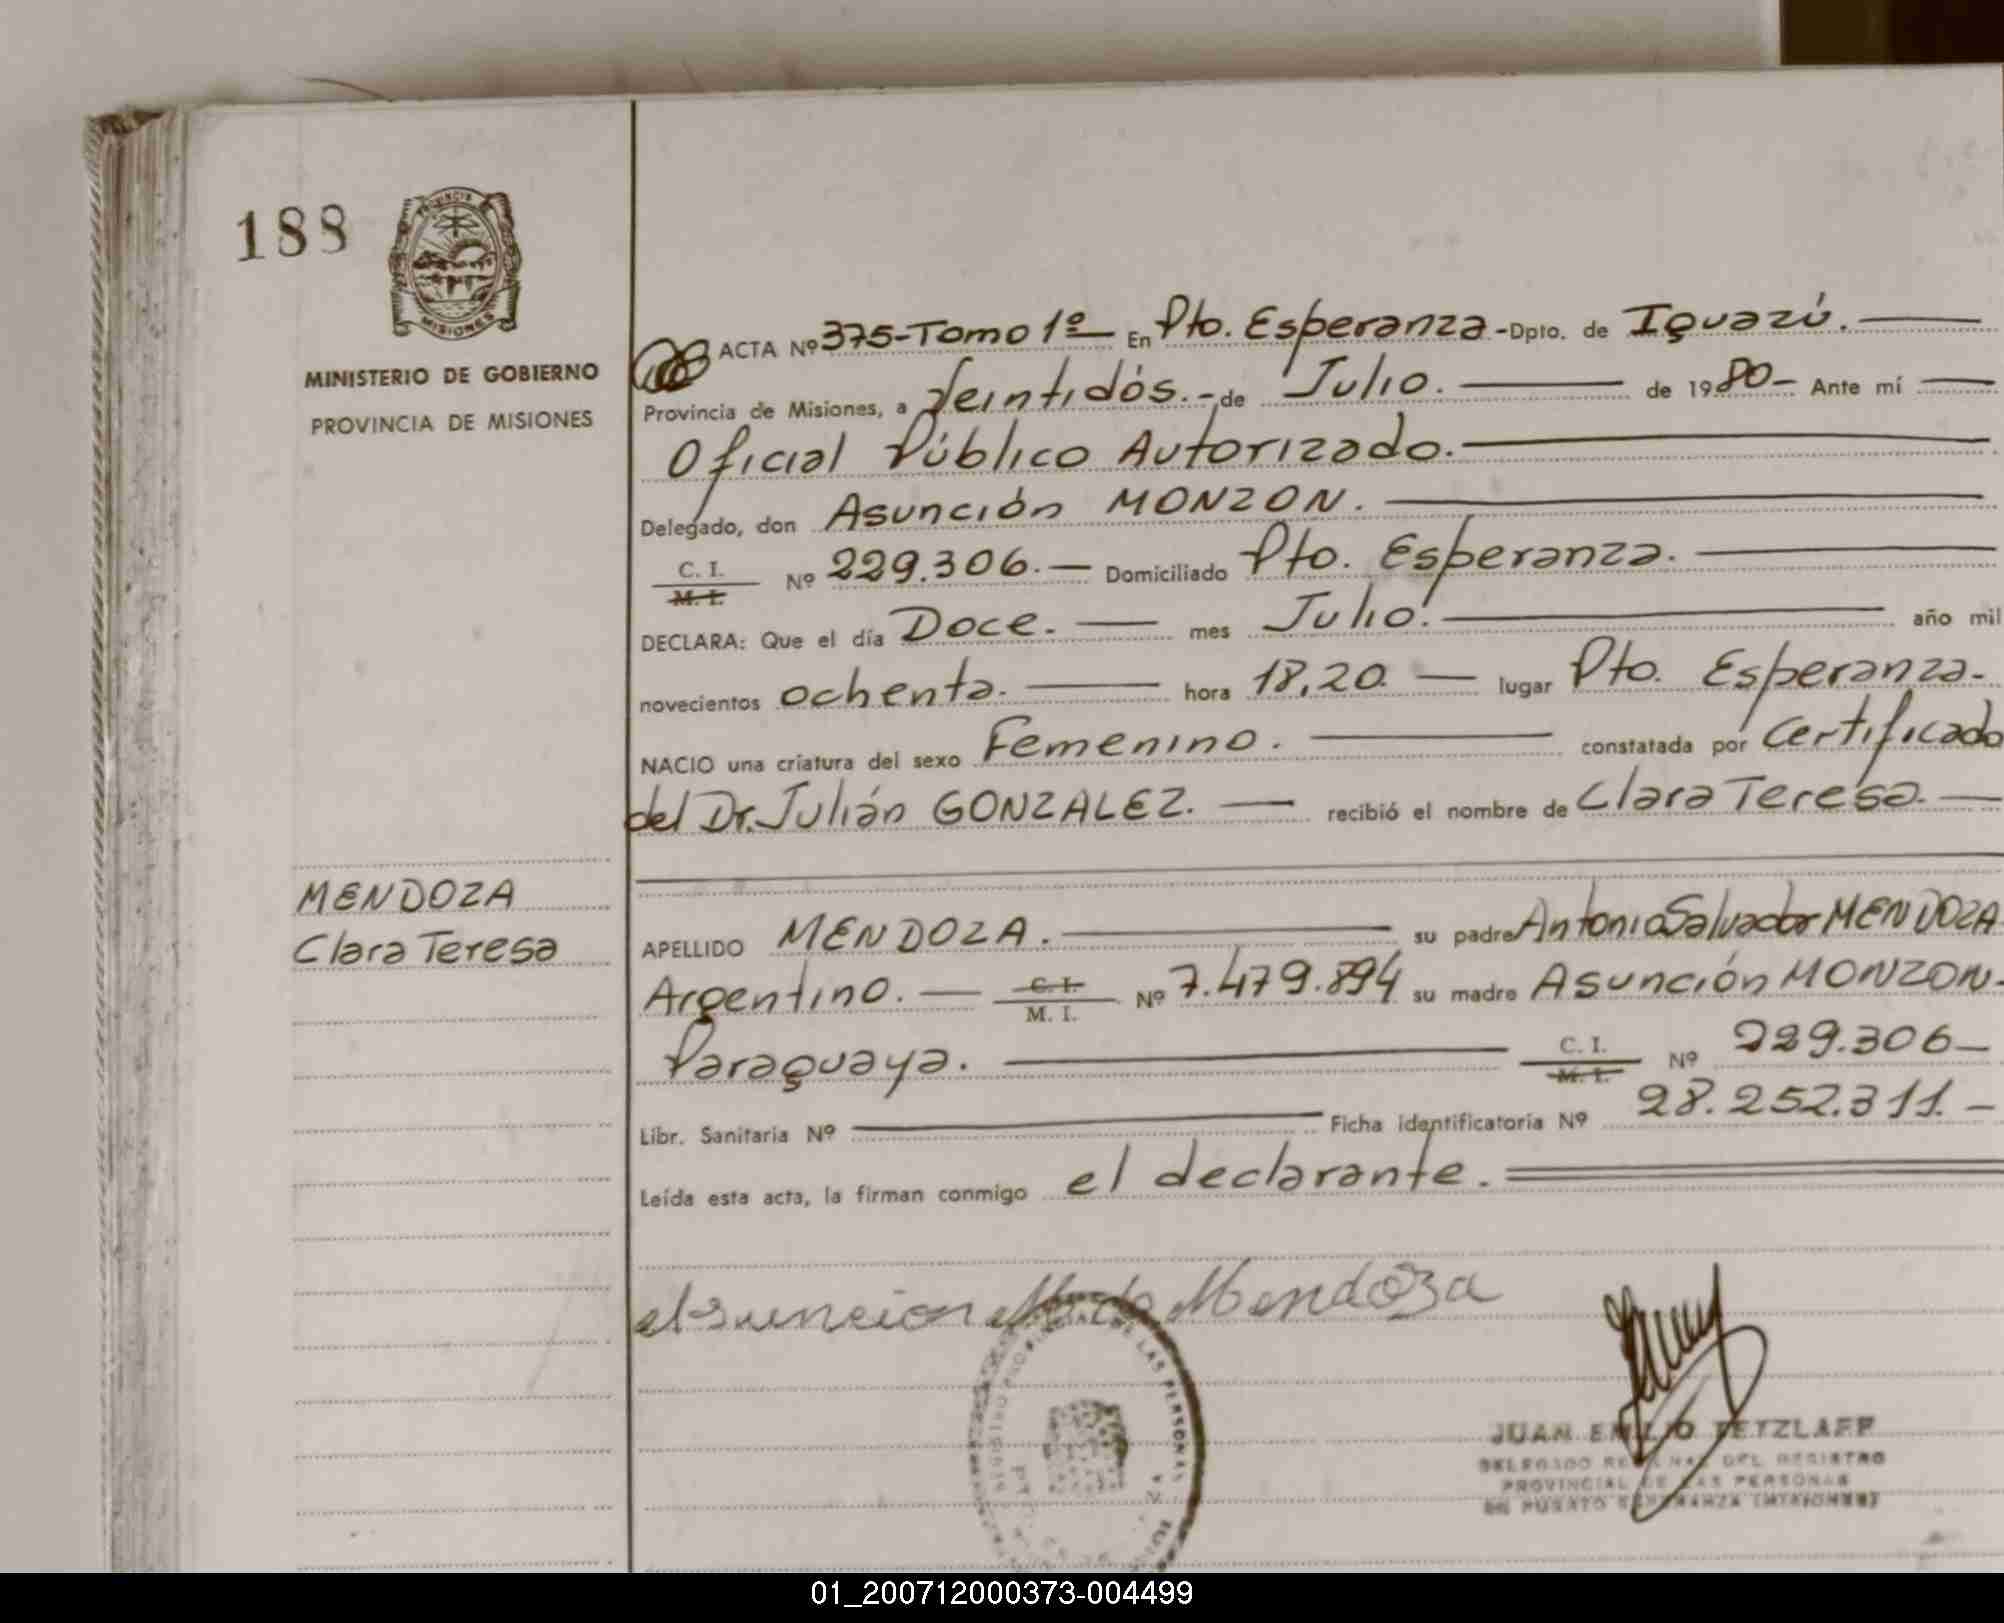 188
MISIONES
MINISTERIO DE GOBIERNO
PROVINCIA DE MISIONES
ACTA Nº 375-Tomo 1º En Pto. Esperanza.-Dpto. de Iguazú.
Provincia de Misiones, a Veintidós.- de Julio. de 1980- Ante mí
Oficial Público Autorizado.
Delegado, don Asunción MONZON.
C. I. M. I. Nº 229.306.- Domiciliado Pto. Esperanza.
DECLARA: Que el día Doce. mes Julio. año mil
novecientos ochenta. hora 18,20. lugar Pto. Esperanza.
NACIO una criatura del sexo Femenino. constatada por Certificado
del Dr. Julián GONZALEZ. recibió el nombre de Clara Teresa.
MENDOZA
Clara Teresa
APELLIDO MENDOZA. su padre Antonio Salvador MENDOZA
Argentino. C. I. M. I. Nº 7.479.894 su madre Asunción MONZON-
Paraguaya. C. I. M. I. Nº 229.306-
Libr. Sanitaria Nº Ficha identificatoria Nº 28.252.311.-
Leída esta acta, la firman conmigo el declarante.
Asuncion M. de Mendoza
PROVINCIAL DE LAS PERSONAS
JUAN EMILIO RETZLAFF
DELEGADO REGIONAL DEL REGISTRO
PROVINCIAL DE LAS PERSONAS
EN PUERTO ESPERANZA (MISIONES)
01_200712000373-004499